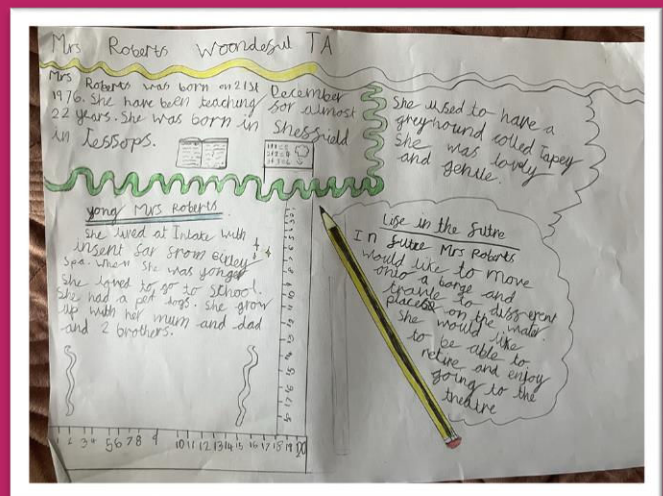 Mrs Roberts Woondeful TA
Mrs Roberts was born on 21st December
1976. She have been teaching for almost
22 years. She was born in Sheffield
in Jessops.
She used to have a
greyhound called Tapey
She was lovely
and gentle.
yong Mrs Roberts
She lived at Intake with
insent far from
Spa. When she was yonger
She loved to go to School.
She had a pet dogs. She grow
up with her mum and dad
and 2 brothers.
Life in the futre
In futre Mrs Roberts
would like to move
onto a barge and
travle to different
places on the water.
She would like
to be able to
retire and enjoy
going to the
theatre